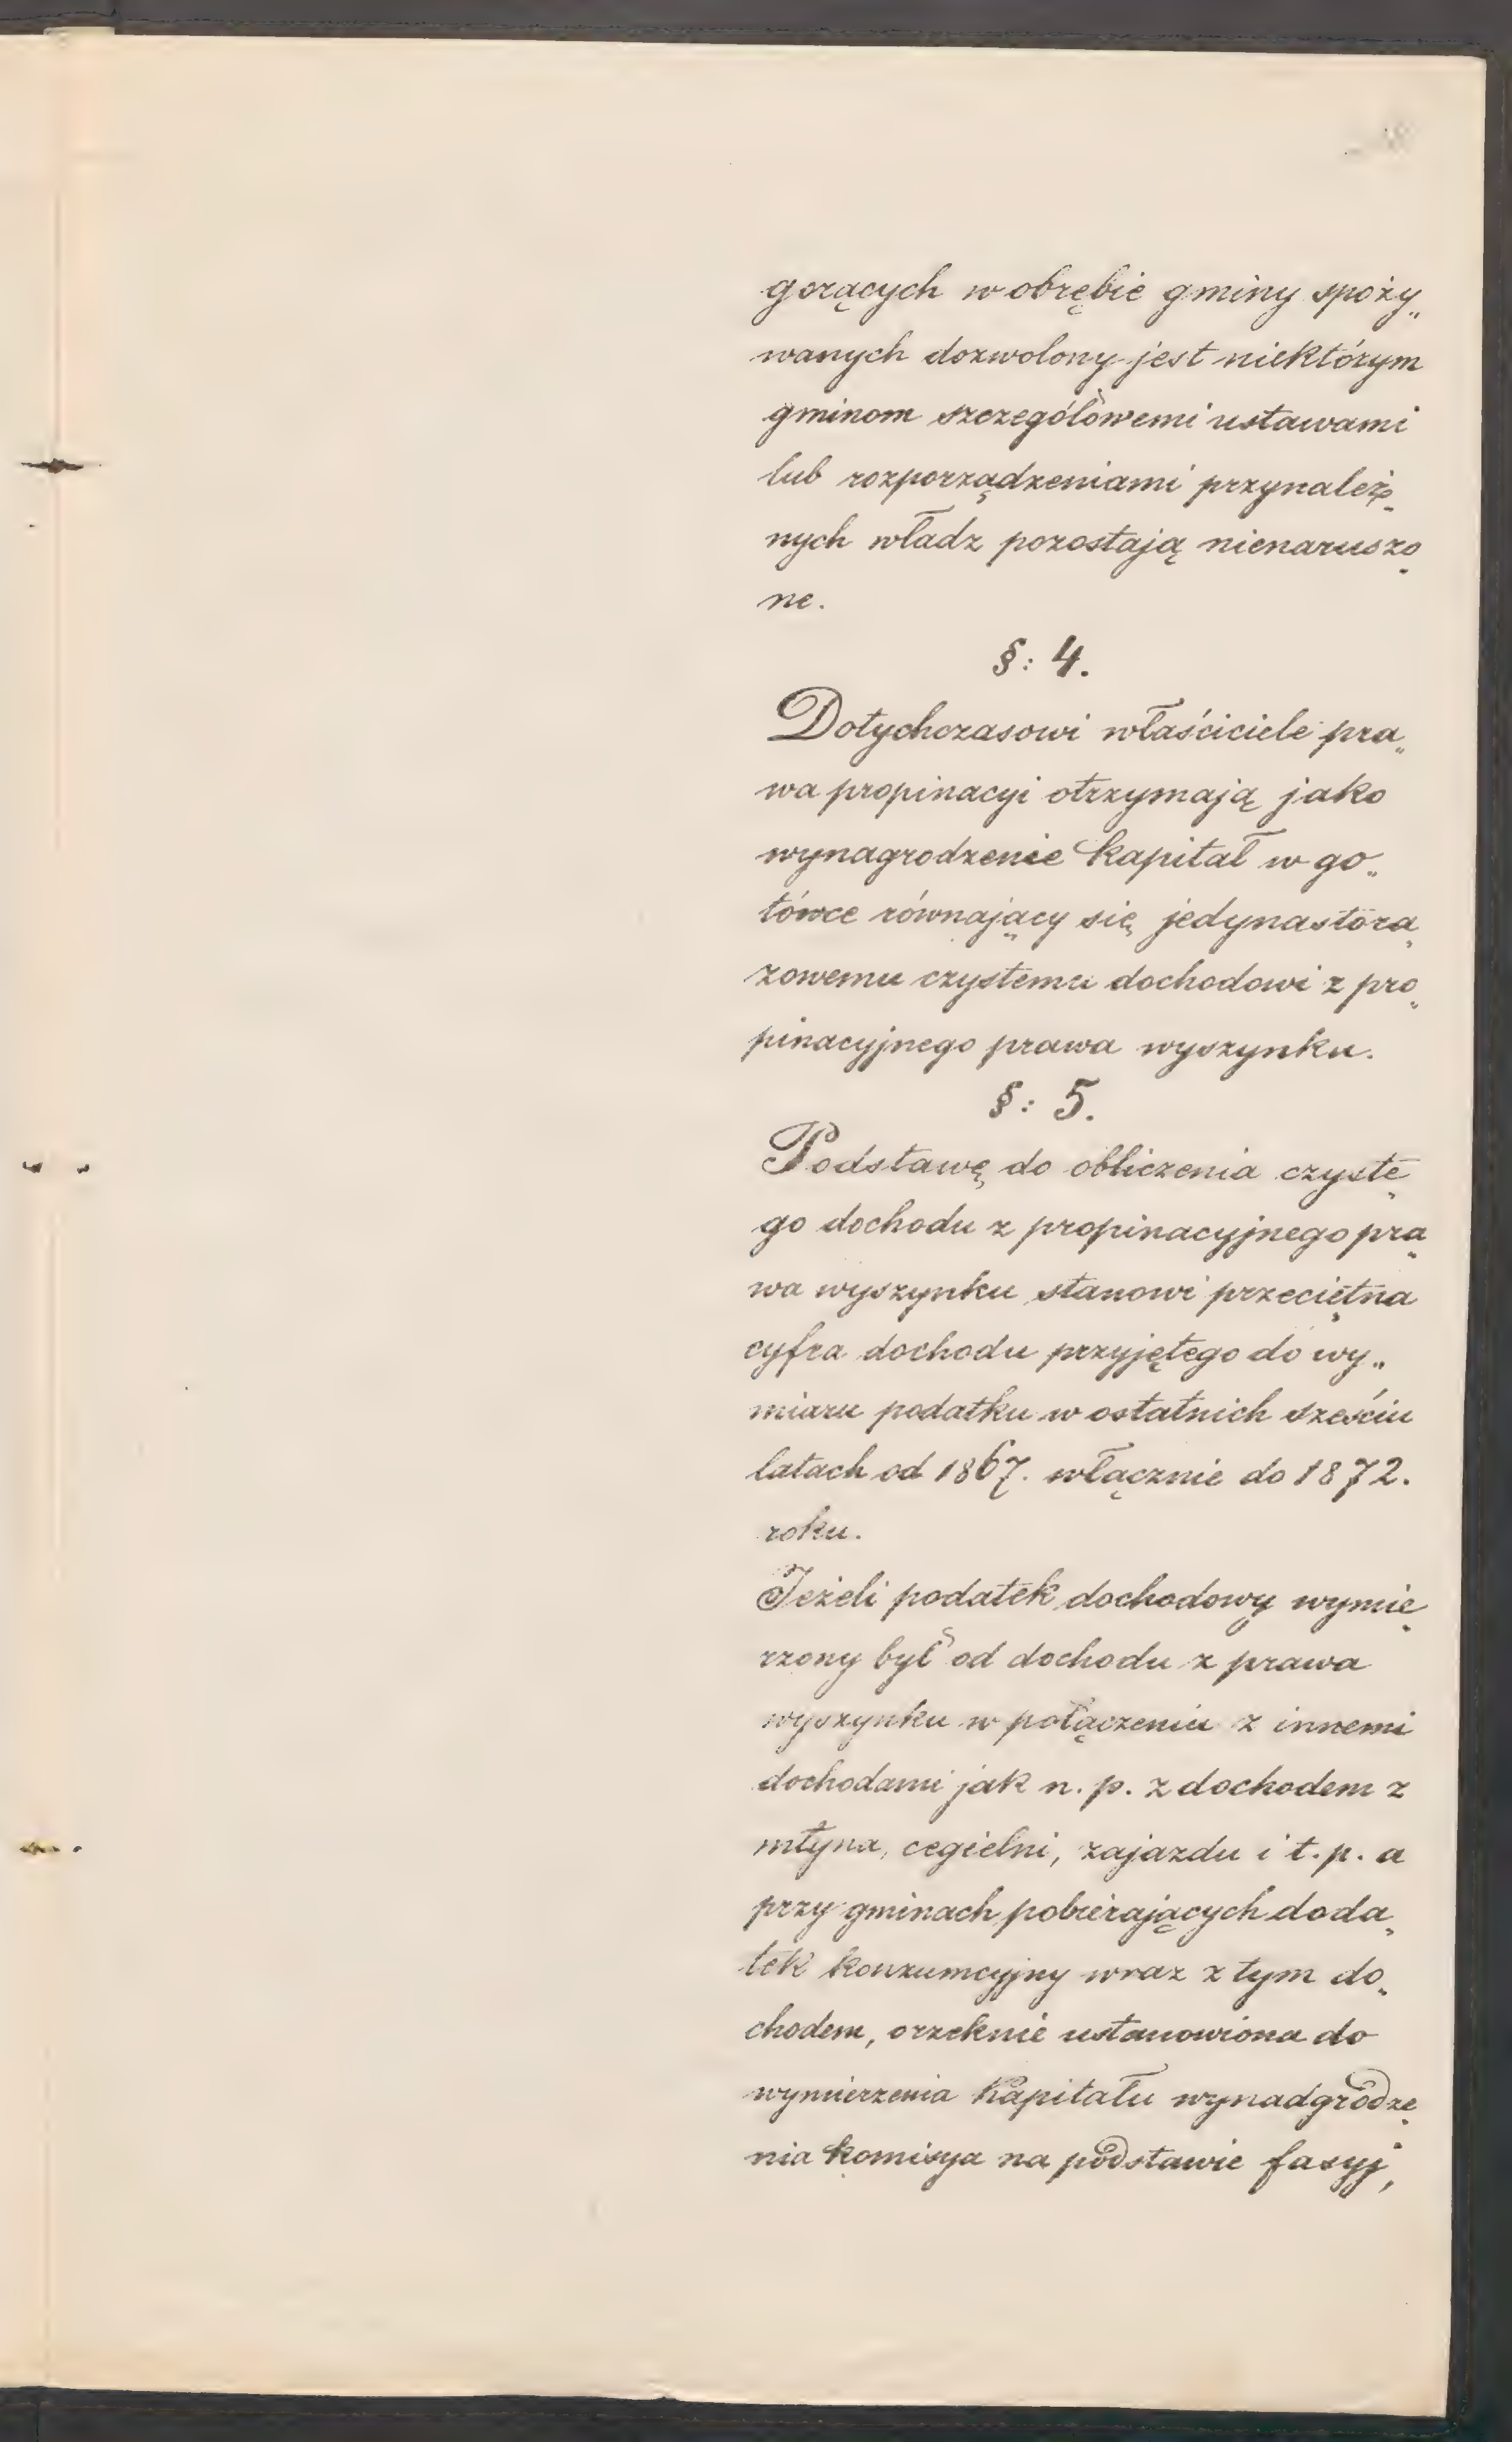 gorących w obrębie gminy spoży„
wanych dozwolony jest niektórym
gminom szczegółowemi ustawami
lub rozporządzeniami przynależ„
nych władz pozostają nienaruszo„
ne.
§: 4.
Dotychczasowi właściciele pra„
wa propinacyi otrzymają jako
wynagrodzenie kapitał w go„
tówce równający się jedynastora„
zowemu czystemu dochodowi z pro„
pinacyjnego prawa wyszynku.
§: 5.
Podstawę do obliczenia czyste„
go dochodu z propinacyjnego pra„
wa wyszynku stanowi przeciętna
cyfra dochodu przyjętego do wy„
miaru podatku w ostatnich sześciu
latach od 1867. włącznie do 1872.
roku.
Jeżeli podatek dochodowy wymie„
rzony był od dochodu z prawa
wyszynku w połączeniu z innemi
dochodami jak n. p. z dochodem z
młyna, cegielni, zajazdu i t. p. a
przy gminach pobierających doda„
tek konzumcyjny wraz z tym do„
chodem, orzeknie ustanowiona do
wymierzenia kapitału wynadgrodze„
nia komisya na podstawie fasyj,